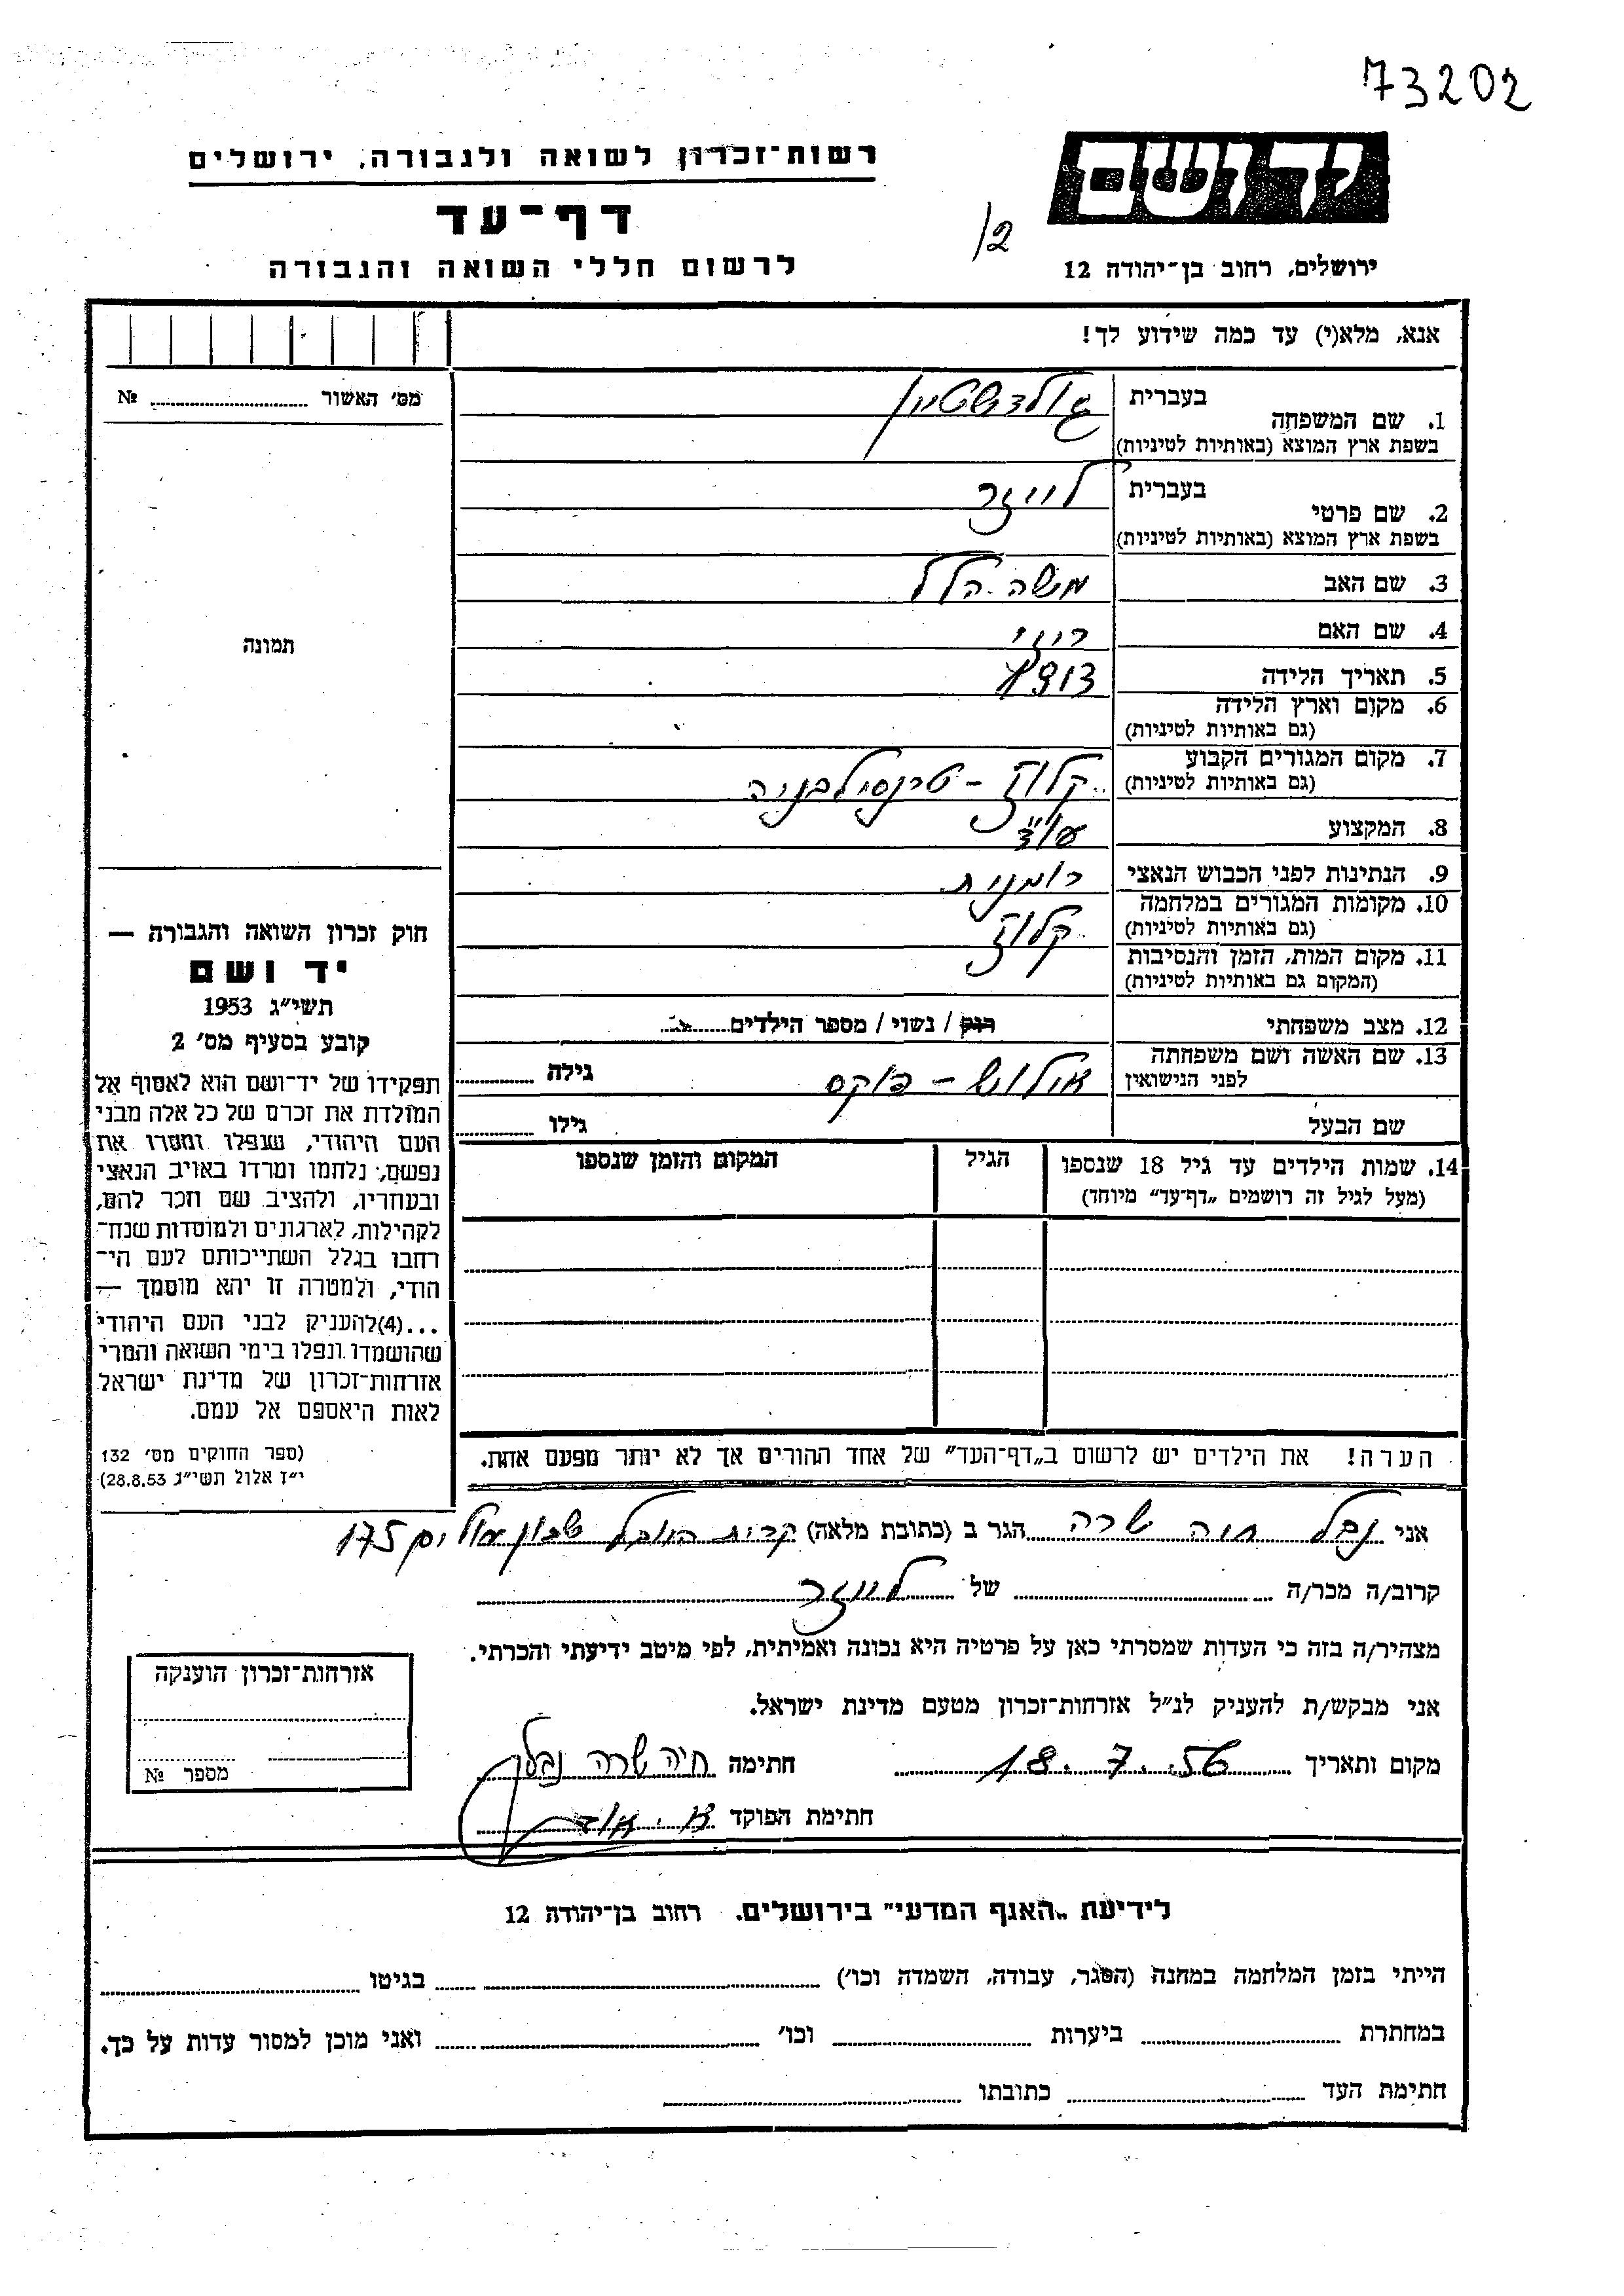 73202
יד ושם
רשות־זכרון לשואה ולגבורה, ירושלים
דף־עד
12
לרשום חללי השואה והגבורה
ירושלים, רחוב בן־יהודה 12
אנא, מלא(י) עד כמה שידוע לך!
מס' האשור № 
1. שם המשפחה
בעברית גולדשטיין
בשפת ארץ המוצא (באותיות לטיניות)
2. שם פרטי
בעברית לייזר
בשפת ארץ המוצא (באותיות לטיניות)
3. שם האב משה הלל
4. שם האם רוזי
5. תאריך הלידה
6. מקום וארץ הלידה
(גם באותיות לטיניות)
7. מקום המגורים הקבוע
(גם באותיות לטיניות) קלוז - טרנסילבניה
8. המקצוע עו"ד
9. הנתינות לפני הכבוש הנאצי רומנית
10. מקומות המגורים במלחמה
(גם באותיות לטיניות) קלוז
11. מקום המות, הזמן והנסיבות
(המקום גם באותיות לטיניות)
12. מצב משפחתי רווק / נשוי / מספר הילדים
13. שם האשה ושם משפחתה
לפני הנישואין אילוש - פוקס גילה
שם הבעל גילו
14. שמות הילדים עד גיל 18 שנספו
(מעל לגיל זה רושמים „דף־עד" מיוחד)
הגיל
המקום והזמן שנספו
הערה! את הילדים יש לרשום ב„דף־העד" של אחד ההורים אך לא יותר מפעם אחת.
תמונה
חוק זכרון השואה והגבורה —
יד ושם
תשי"ג 1953
קובע בסעיף מס' 2
תפקידו של יד־ושם הוא לאסוף אל
המולדת את זכרם של כל אלה מבני
העם היהודי, שנפלו ומסרו את
נפשם, נלחמו ומרדו באויב הנאצי
ובעוזריו, ולהציב שם וזכר להם,
לקהילות, לארגונים ולמוסדות שנח־
רבו בגלל השתייכותם לעם הי־
הודי, ולמטרה זו יהא מוסמך —
...(4) להעניק לבני העם היהודי
שהושמדו ונפלו בימי השואה והמרי
אזרחות־זכרון של מדינת ישראל
לאות היאספם אל עמם.
(ספר החוקים מס' 132
י"ז אלול תשי"ג 28.8.53)
אני חוה שרה הגר ב (כתובת מלאה) קרית היובל שכון עולים 175
קרוב/ה מכר/ה של לייזר
מצהיר/ה בזה כי העדות שמסרתי כאן על פרטיה היא נכונה ואמיתית, לפי מיטב ידיעתי והכרתי.
אני מבקש/ת להעניק לנ"ל אזרחות־זכרון מטעם מדינת ישראל.
מקום ותאריך 18.7.56 חתימה חיה שרה
חתימת הפוקד
אזרחות־זכרון הוענקה
מספר №
לידיעת „האגף המדעי" בירושלים. רחוב בן־יהודה 12
הייתי בזמן המלחמה במחנה (הסגר, עבודה, השמדה וכו') בגיטו
במחתרת ביערות וכו' ואני מוכן למסור עדות על כך.
חתימת העד כתובתו